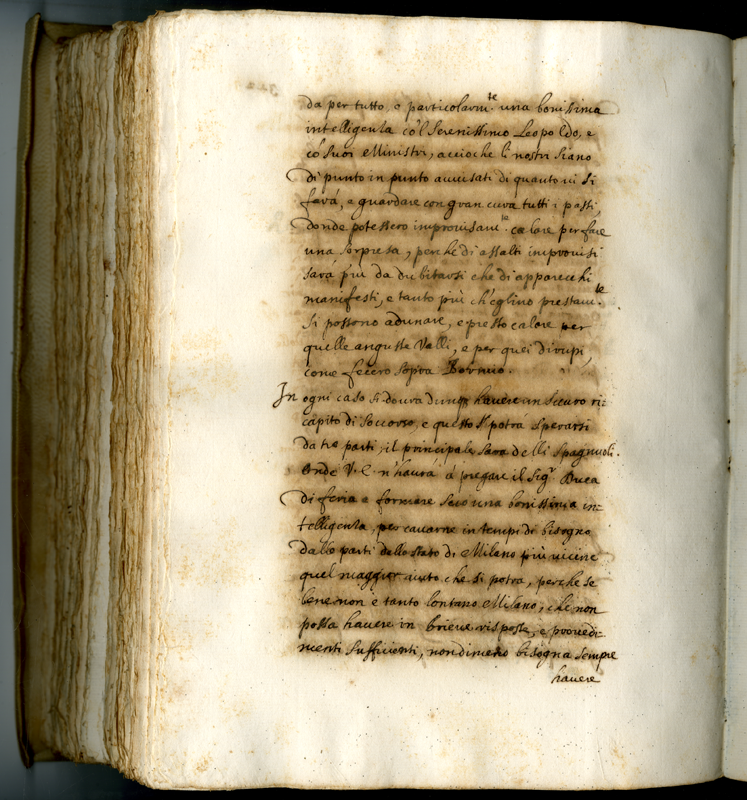 da per tutto, e particolarm.te una bonissima
intelligenza co'l Serenissimo Leopoldo, e
co' suoi Ministri, acciòche li nostri siano
di punto in punto avvisati di quanto ivi si
farà, e guardare con gran cura tutti i passi,
donde potessero improvisam.te calare per fare
una sorpresa, perche di assalti improvisi
sarà più da dubitarsi che di apparecchi
manifesti, e tanto più ch'eglino prestam.te
si possono adunare, e presto calare per
quelle anguste Valli, e per quei dirupi,
come fecero sopra Bormio.
In ogni caso si dovrà dunq. havere un sicuro ri=
capito di soccorso, e questo si potrà sperarsi
da tre parti, il principale sarà delli Spagnuoli.
Onde V. E. n'haurà à pregare il Sig.r Duca
di feria e formare seco una bonissima in=
telligenza, per cavarne in tempi di bisogno
dalle parti dello Stato di Milano più vicine
quel maggior aiuto che si potrà, perche se
bene non è tanto lontano Milano, che non
possa havere in brieve risposte, e provedi=
menti sufficienti, nondimeno bisogna sempre
havere